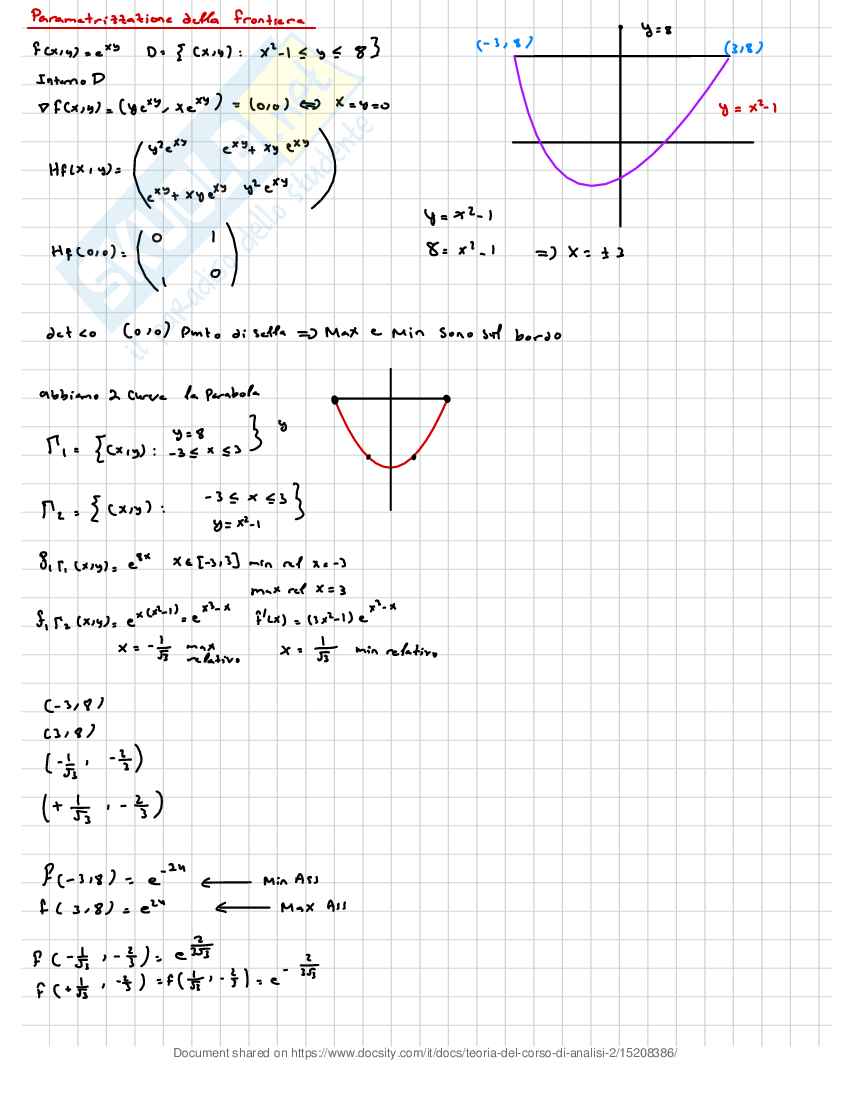 Parametrizzazione della frontiera
f(x,y) = e^{xy} D = { (x,y) : x²-1 ≤ y ≤ 8 }
Interno D
∇f(x,y) = (ye^{xy}, xe^{xy}) = (0,0) ⇔ x=y=0
y=8
(-3,8)
(3,8)
y = x²-1
Hf(x,y) = ( y²e^{xy} e^{xy}+ xy e^{xy}
e^{xy}+ xy e^{xy} y²e^{xy} )
y = x²-1
8 = x²-1 => x = ±3
Hf(0,0) = ( 0 1
1 0 )
det <0 (0,0) Punto di sella => Max e Min sono sul bordo
abbiamo 2 curve la Parabola
Γ₁ = { (x,y) : y=8
-3 ≤ x ≤ 3 } y
Γ₂ = { (x,y) : -3 ≤ x ≤ 3
y = x²-1 }
f|Γ₁ (x,y) = e^{8x} x ∈ [-3,3] min rel x=-3
max rel x=3
f|Γ₂ (x,y) = e^{x(x²-1)} = e^{x³-x} f'(x) = (3x²-1) e^{x³-x}
x = -1/√3 max relativo x = 1/√3 min relativo
(-3,8)
(3,8)
(-1/√3, -2/3)
(+1/√3, -2/3)
f(-3,8) = e^{-24} ← Min Ass
f(3,8) = e^{24} ← Max Ass
f(-1/√3, -2/3) = e^{2/3√3}
f(+1/√3, -2/3) = f(1/√3, -2/3) = e^{-2/3√3}
SKUOLA.net
il paradiso dello studente
Document shared on https://www.docsity.com/it/docs/teoria-del-corso-di-analisi-2/15208386/